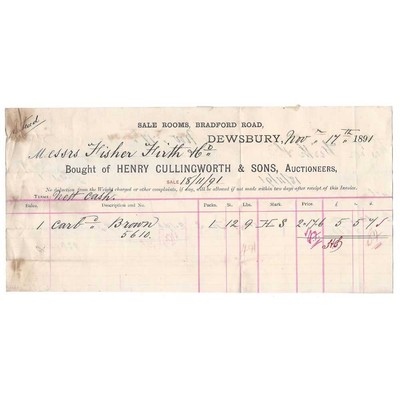 SALE ROOMS, BRADFORD ROAD,
DEWSBURY, Nov r. 17th. 1891
Messrs Fisher Firth & Co
Bought of HENRY CULLINGWORTH & SONS, AUCTIONEERS,
SALE 18/11/91
No deduction from the Weight charged or other complaints, if any, will be allowed if not made within two days after receipt of this Invoice.
TERMS Nett Cash.
Bales. Description and No. Packs. St. Lbs. Stack. Price. £ s. d.
1 Carbd Brown 1 12 9 H S 2.17.6 5 5 7½
5610.